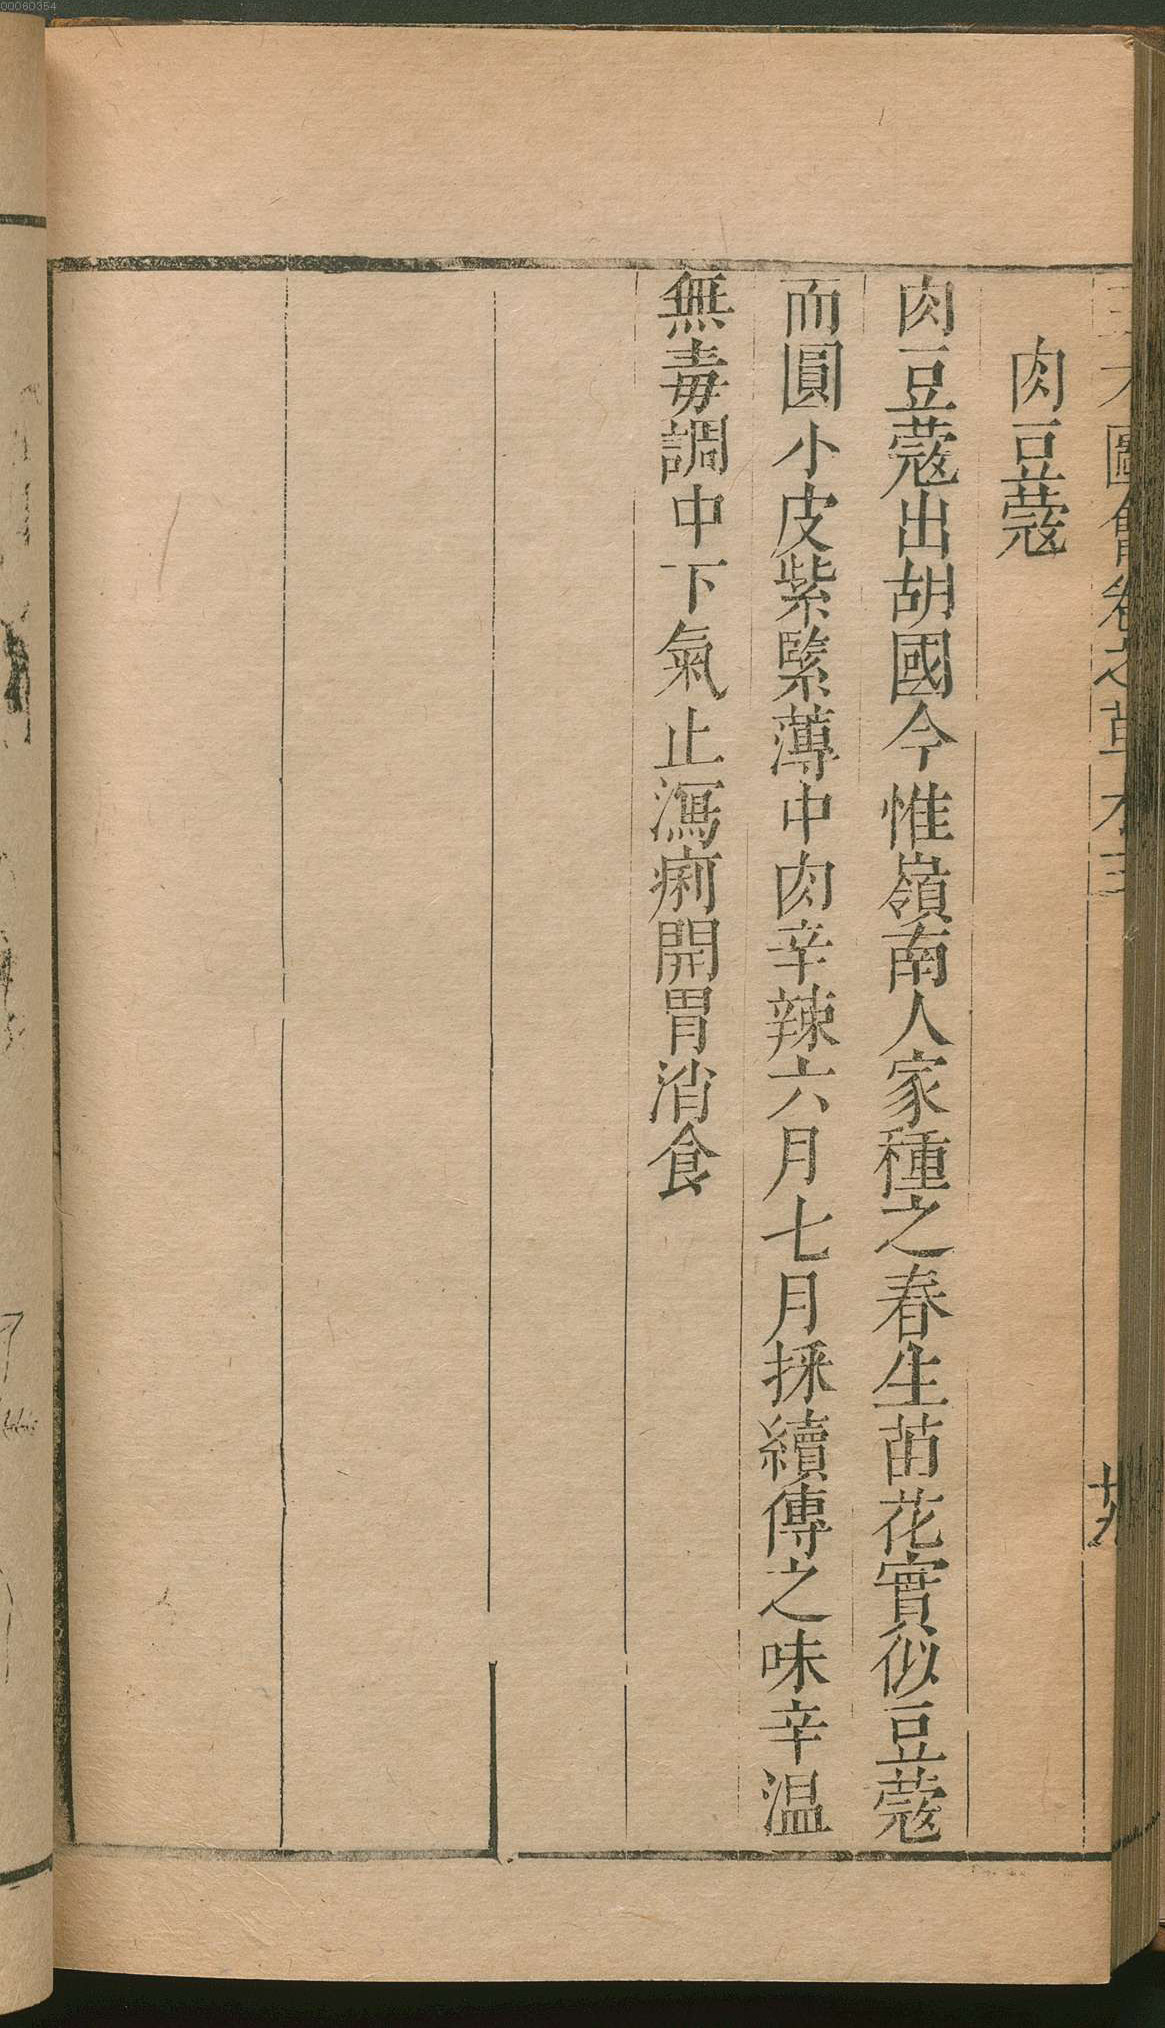 00060354
圖會卷之草木三
廿九
肉豆蔻
肉豆蔻出胡國今惟嶺南人家種之春生苗花實似豆蔻
而圓小皮紫緊薄中肉辛辣六月七月採續傳之味辛温
無毒調中下氣止瀉痢開胃消食